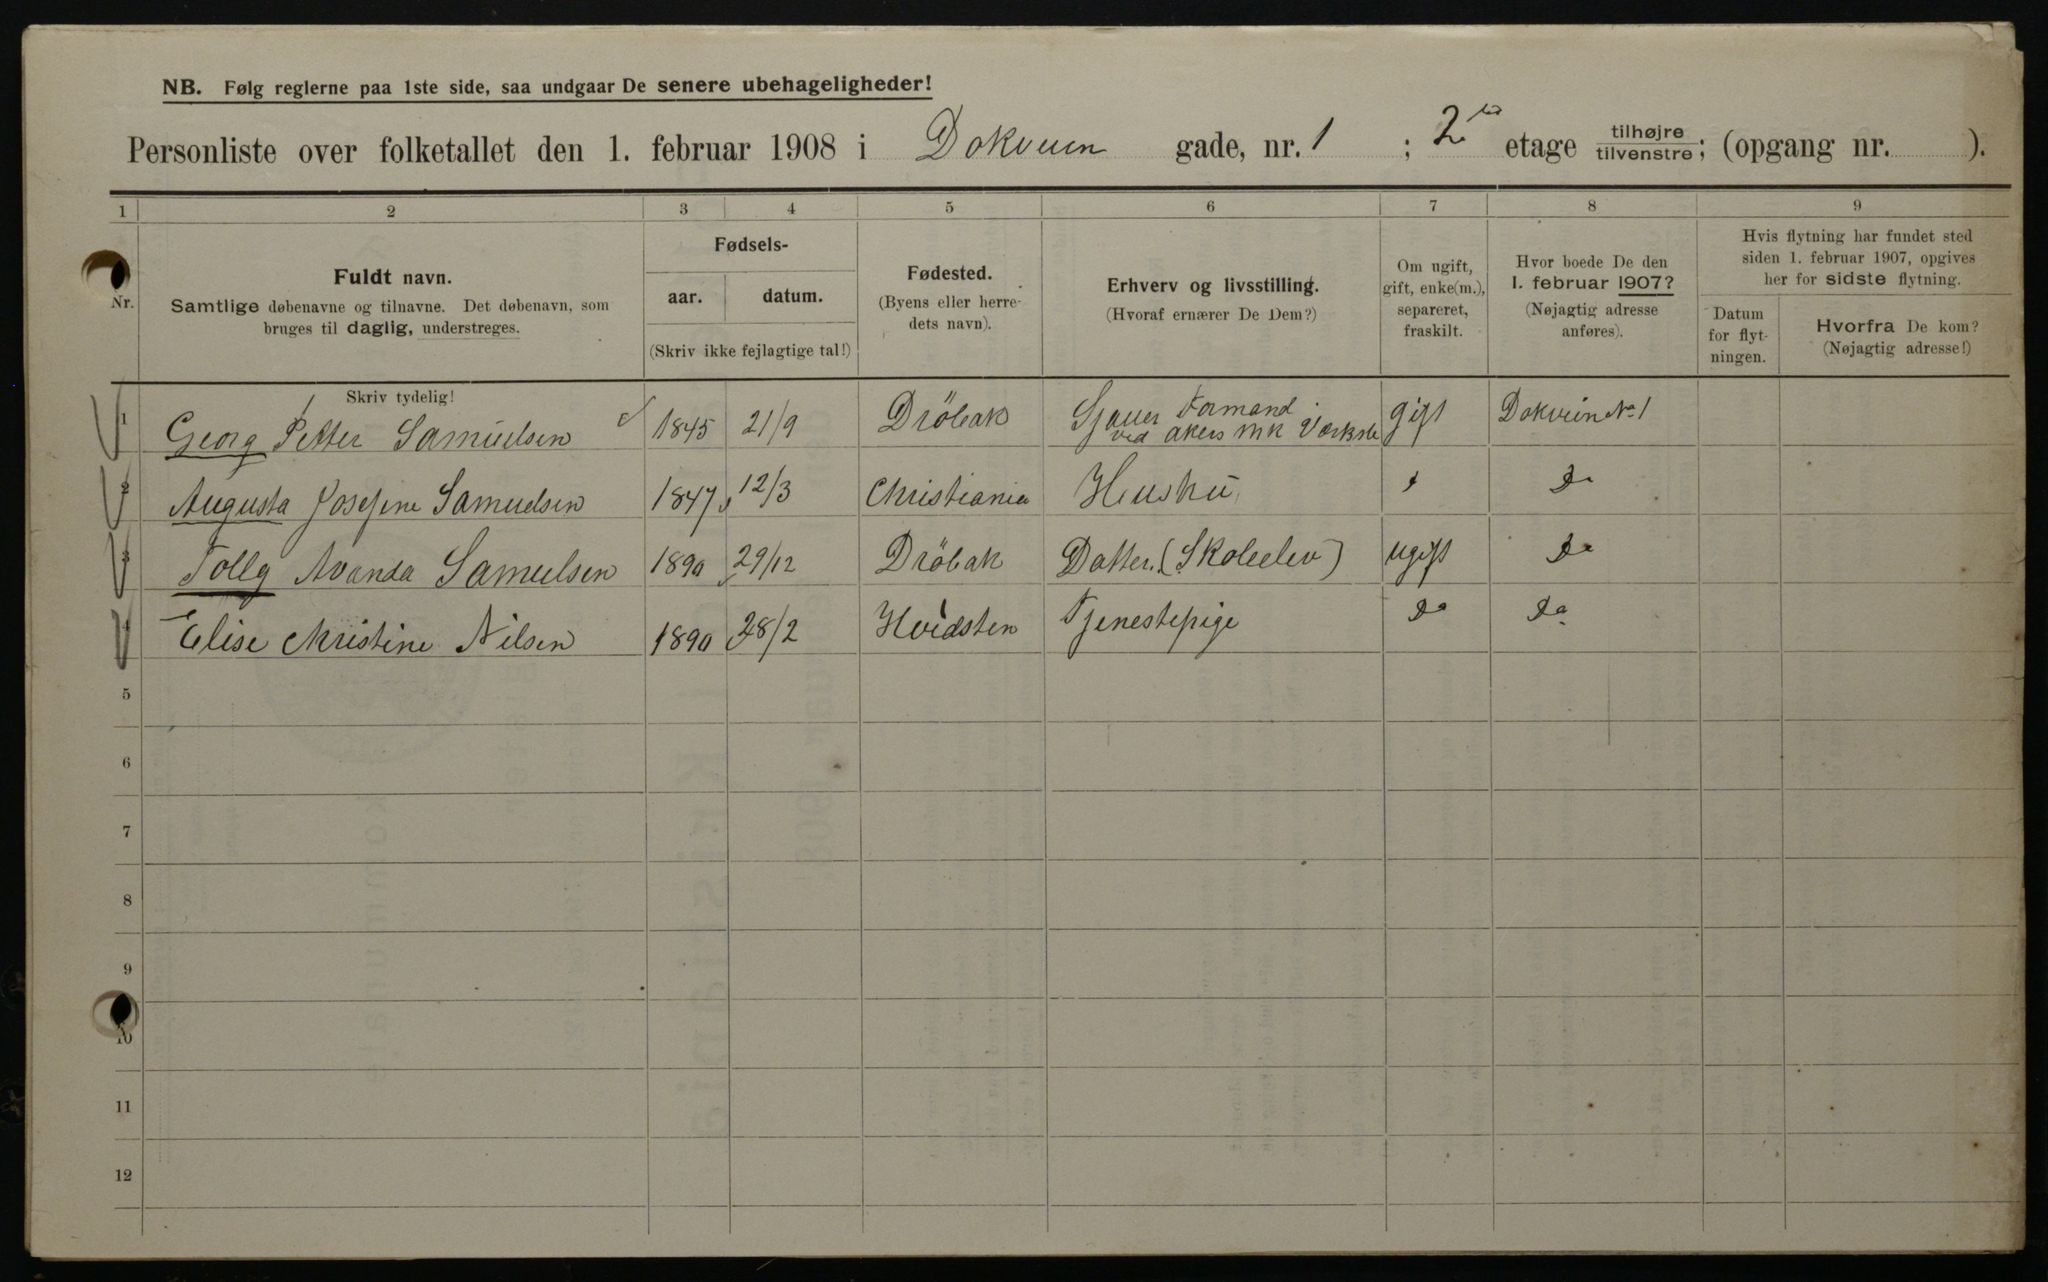 NB. Følg reglerne paa 1ste side, saa undgaar De senere ubehageligheder!
Personliste over folketallet den 1. februar 1908 i Dokveien gade, nr. 1 ; 2 etage tilhøjre / tilvenstre; (opgang nr. ).
1 2 3 4 5 6 7 8 9
Nr.
Fuldt navn.
Samtlige døbenavne og tilnavne. Det døbenavn, som
bruges til daglig, understreges.
Fødsels-
aar. datum.
(Skriv ikke fejlagtige tal!)
Fødested.
(Byens eller herre-
dets navn).
Erhverv og livsstilling.
(Hvoraf ernærer De Dem?)
Om ugift,
gift, enke(m.),
separeret,
fraskilt.
Hvor boede De den
1. februar 1907?
(Nøjagtig adresse
anføres).
Hvis flytning har fundet sted
siden 1. februar 1907, opgives
her for sidste flytning.
Datum
for flyt-
ningen.
Hvorfra De kom?
(Nøjagtig adresse!)
Skriv tydelig!
1 Georg Petter Samuelsen 1845 21/9 Dröbak Sjauer Formand ved akers mk Værkste gift Dokveien No 1
2 Augusta Josefine Samuelsen 1847 12/3 Christiania Hustru Do
3 Avanda Samuelsen 1890 29/12 Dröbak Datter. (Skoleelev) ugift Do
4 Elise Christine Nilsen 1890 28/2 Hvidsten Tjenestepige Do Do
5
6
7
8
9
10
11
12